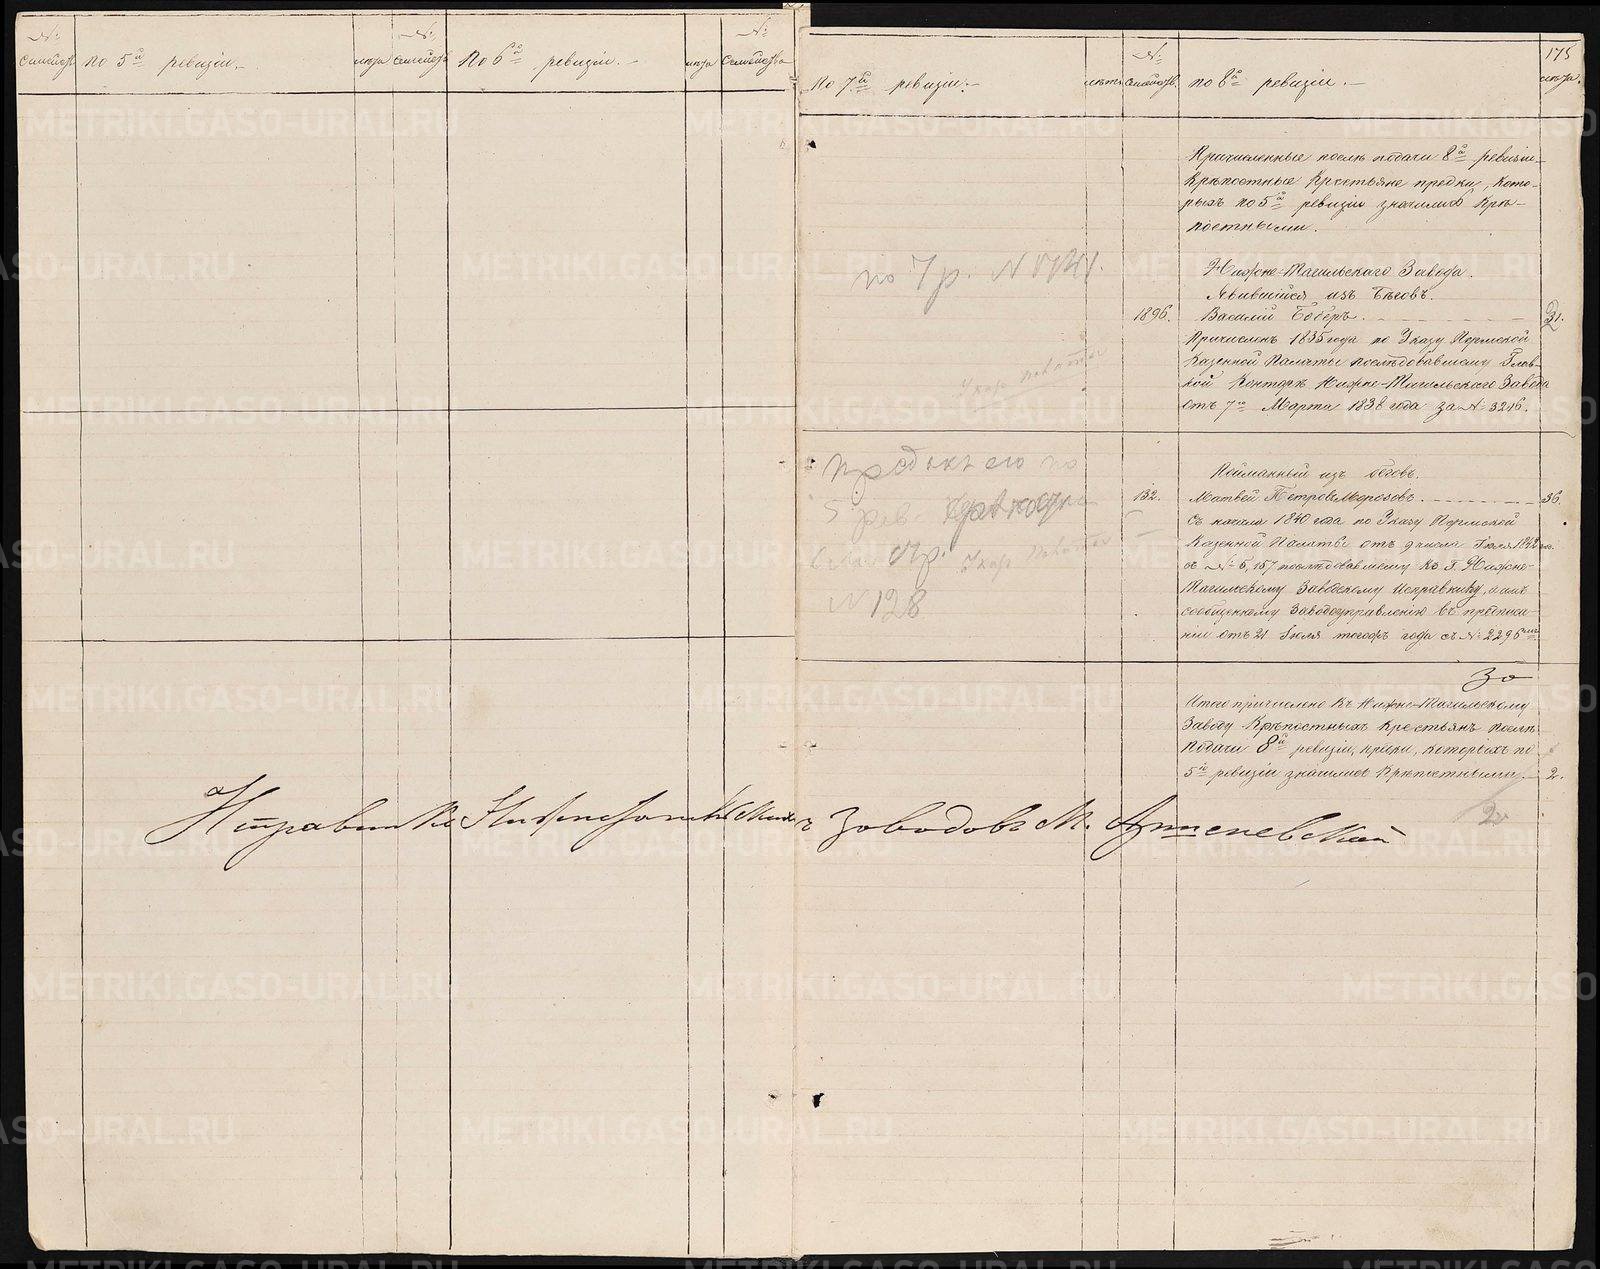 № семействъ
по 5й ревизіи.
лѣта
№ семейства
По 6й ревизіи.
лѣта
№ Семейства
по 7й ревизіи.
лѣта
№ семейств.
по 8й ревизіи.
175
лѣта.
Причисленные послѣ подачи 8й ревизіи
Крѣпостные Крестьяне предки, кото-
рыхъ по 5й ревизіи значились Крѣ-
постными.
Нижне-Тагильскаго Завода.
Явившійся изъ бѣговъ.
1896. Василій Боберъ. 31.
Причисленъ 1835 года по Указу Пермской
Казенной Палаты послѣдовавшему Глав-
ной Конторѣ Нижне-Тагильскаго Завода
отъ 7го Марта 1838 года за № 3216.
по 7 р. №
Указ
Пойманный изъ бѣговъ.
132. Матвей Петровъ Морозовъ. 36.
Съ начала 1840 года по Указу Пермской
Казенной Палаты отъ 9 числа Іюля 1842 го.
съ № 5,157 послѣдовавшему къ Г. Нижне-
Тагильскому Заводскому Исправнику, а имъ
сообщенному Заводоуправленію въ предписа-
ніи отъ 21 Іюля тогожъ года съ № 2296мъ
предокъ его по
5 рев.
стр. Указ
№ 128
Итого причислено къ Нижне-Тагильскому
Заводу Крѣпостныхъ крестьянъ послѣ
подачи 8й ревизіи, предки, которыхъ по
5й ревизіи значились Крѣпостными. 2.
2
Исправникъ Нижнетагильскихъ Заводовъ М.
METRIKI.GASO-URAL.RU